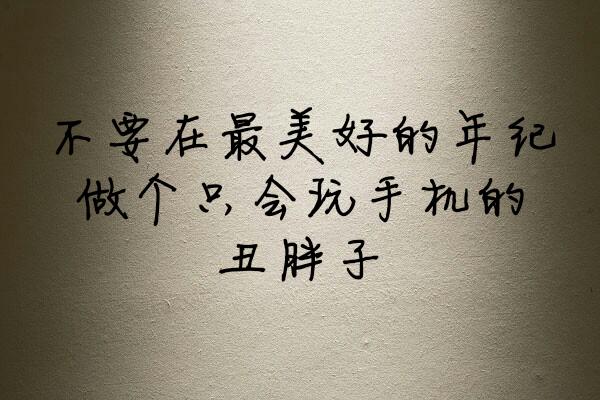 不要在最美好的年纪
做个只会玩手机的
丑胖子